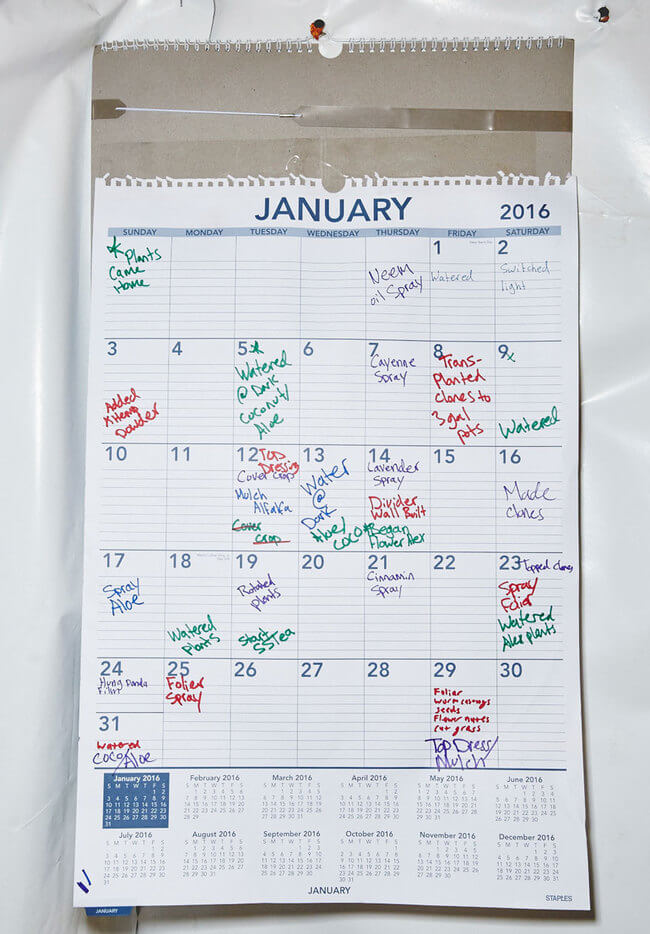 JANUARY 2016
SUNDAY MONDAY TUESDAY WEDNESDAY THURSDAY FRIDAY SATURDAY
* Plants
Came
Home
Neem
oil Spray
1
Watered
2
Switched
light
3
Added
Powder
4
5 *
Watered
@ Dark
Coconut/
Aloe
6
7
Cayenne
Spray
8
Trans-
Planted
clones to
3 gal
pots
9 x
Watered
10
11
12 Top
Dressing
Cover Crop
Mulch
Alfalfa
Cover
crop
13
Water
@
Dark
Aloe/
coco
14
Lavender
Spray
Divider
Wall Built
* Began
Flower Alex
15
16
Made
clones
17
Spray
Aloe
18
Watered
Plants
19
Rotated
plants
Start
SSTea
20
21
Cinnamin
Spray
22
23 Topped clones
Spray
Folier
Watered
Alex plants
24
Hung Panda
Film
25
Folier
Spray
26
27
28
29
Folier
worm castings
seeds
Flower nutes
cut grass
Top Dress/
Mulch
30
31
Watered
Coco/Aloe
January 2016 February 2016 March 2016 April 2016 May 2016 June 2016
July 2016 August 2016 September 2016 October 2016 November 2016 December 2016
JANUARY
STAPLES
JANUARY